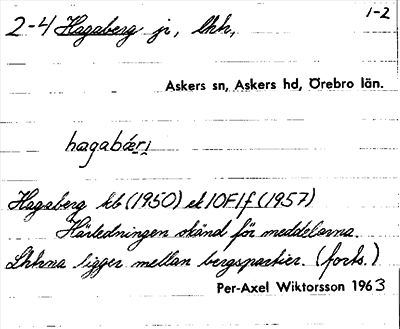 1-2
2-4 Hagaberg jr, lhh,
Askers sn, Askers hd, Örebro län.
hagabǽrı̣
Hagaberg kb (1950) ek 10F1f (1957)
Härledningen okänd för meddelarna.
Lhhna ligger mellan bergspartier. (forts.)
Per-Axel Wiktorsson 1963